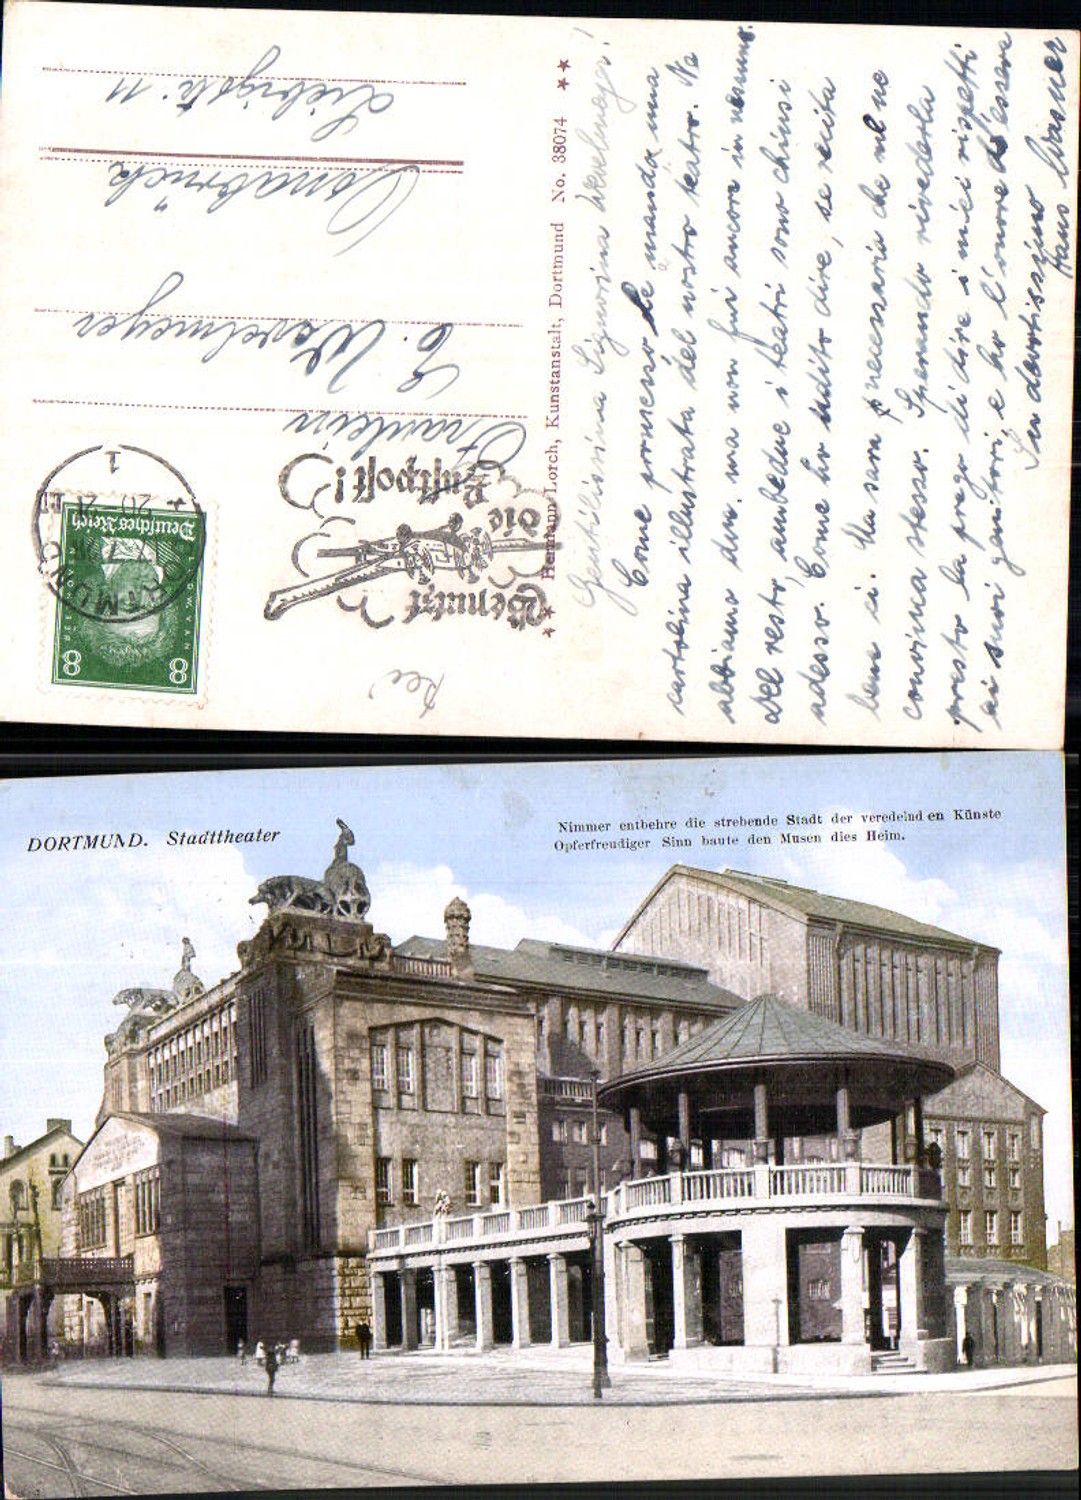 Gentilissima Signorina Wevelmeyer!
Come promesso Le manda una
cartolina illustrata del nostro teatro. Ne
abbiamo due, ma non fui ancora in nessuno.
Del resto, ambedue i teatri sono chiusi
adesso. Come ho udito dire, se recita
bene ci. Ma sarà necessaria che me ne
convinca stesso. Sperando rivederla
presto la prego di dire i miei rispetti
ai suoi genitori, e ho l'onore d'essere
Suo devotissimo
Hans
Hermann Lorch, Kunstanstalt, Dortmund No. 38074
Benutzt
die
Luftpost!
DORTMUND
1
Deutsches Reich
8 8
Fräulein
E. Wevelmeyer
Osnabrück
Liebigstr. 11
DORTMUND. Stadttheater
Nimmer entbehre die strebende Stadt der veredelnden Künste
Opferfreudiger Sinn baute den Musen dies Heim.